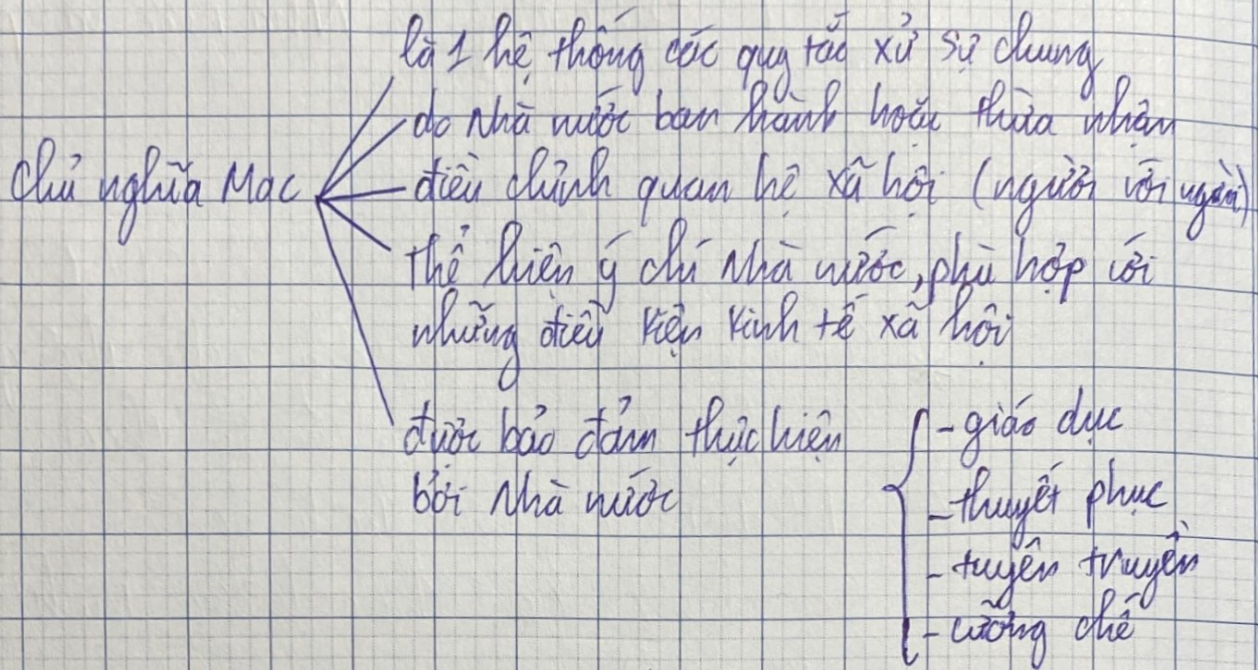 là 1 hệ thống các quy tắc xử sự chung
do Nhà nước ban hành hoặc thừa nhận
Chủ nghĩa Mac
điều chỉnh quan hệ xã hội (người với người)
thể hiện ý chí Nhà nước, phù hợp với
những điều kiện kinh tế xã hội
được bảo đảm thực hiện
bởi Nhà nước
- giáo dục
- thuyết phục
- tuyên truyền
- cưỡng chế